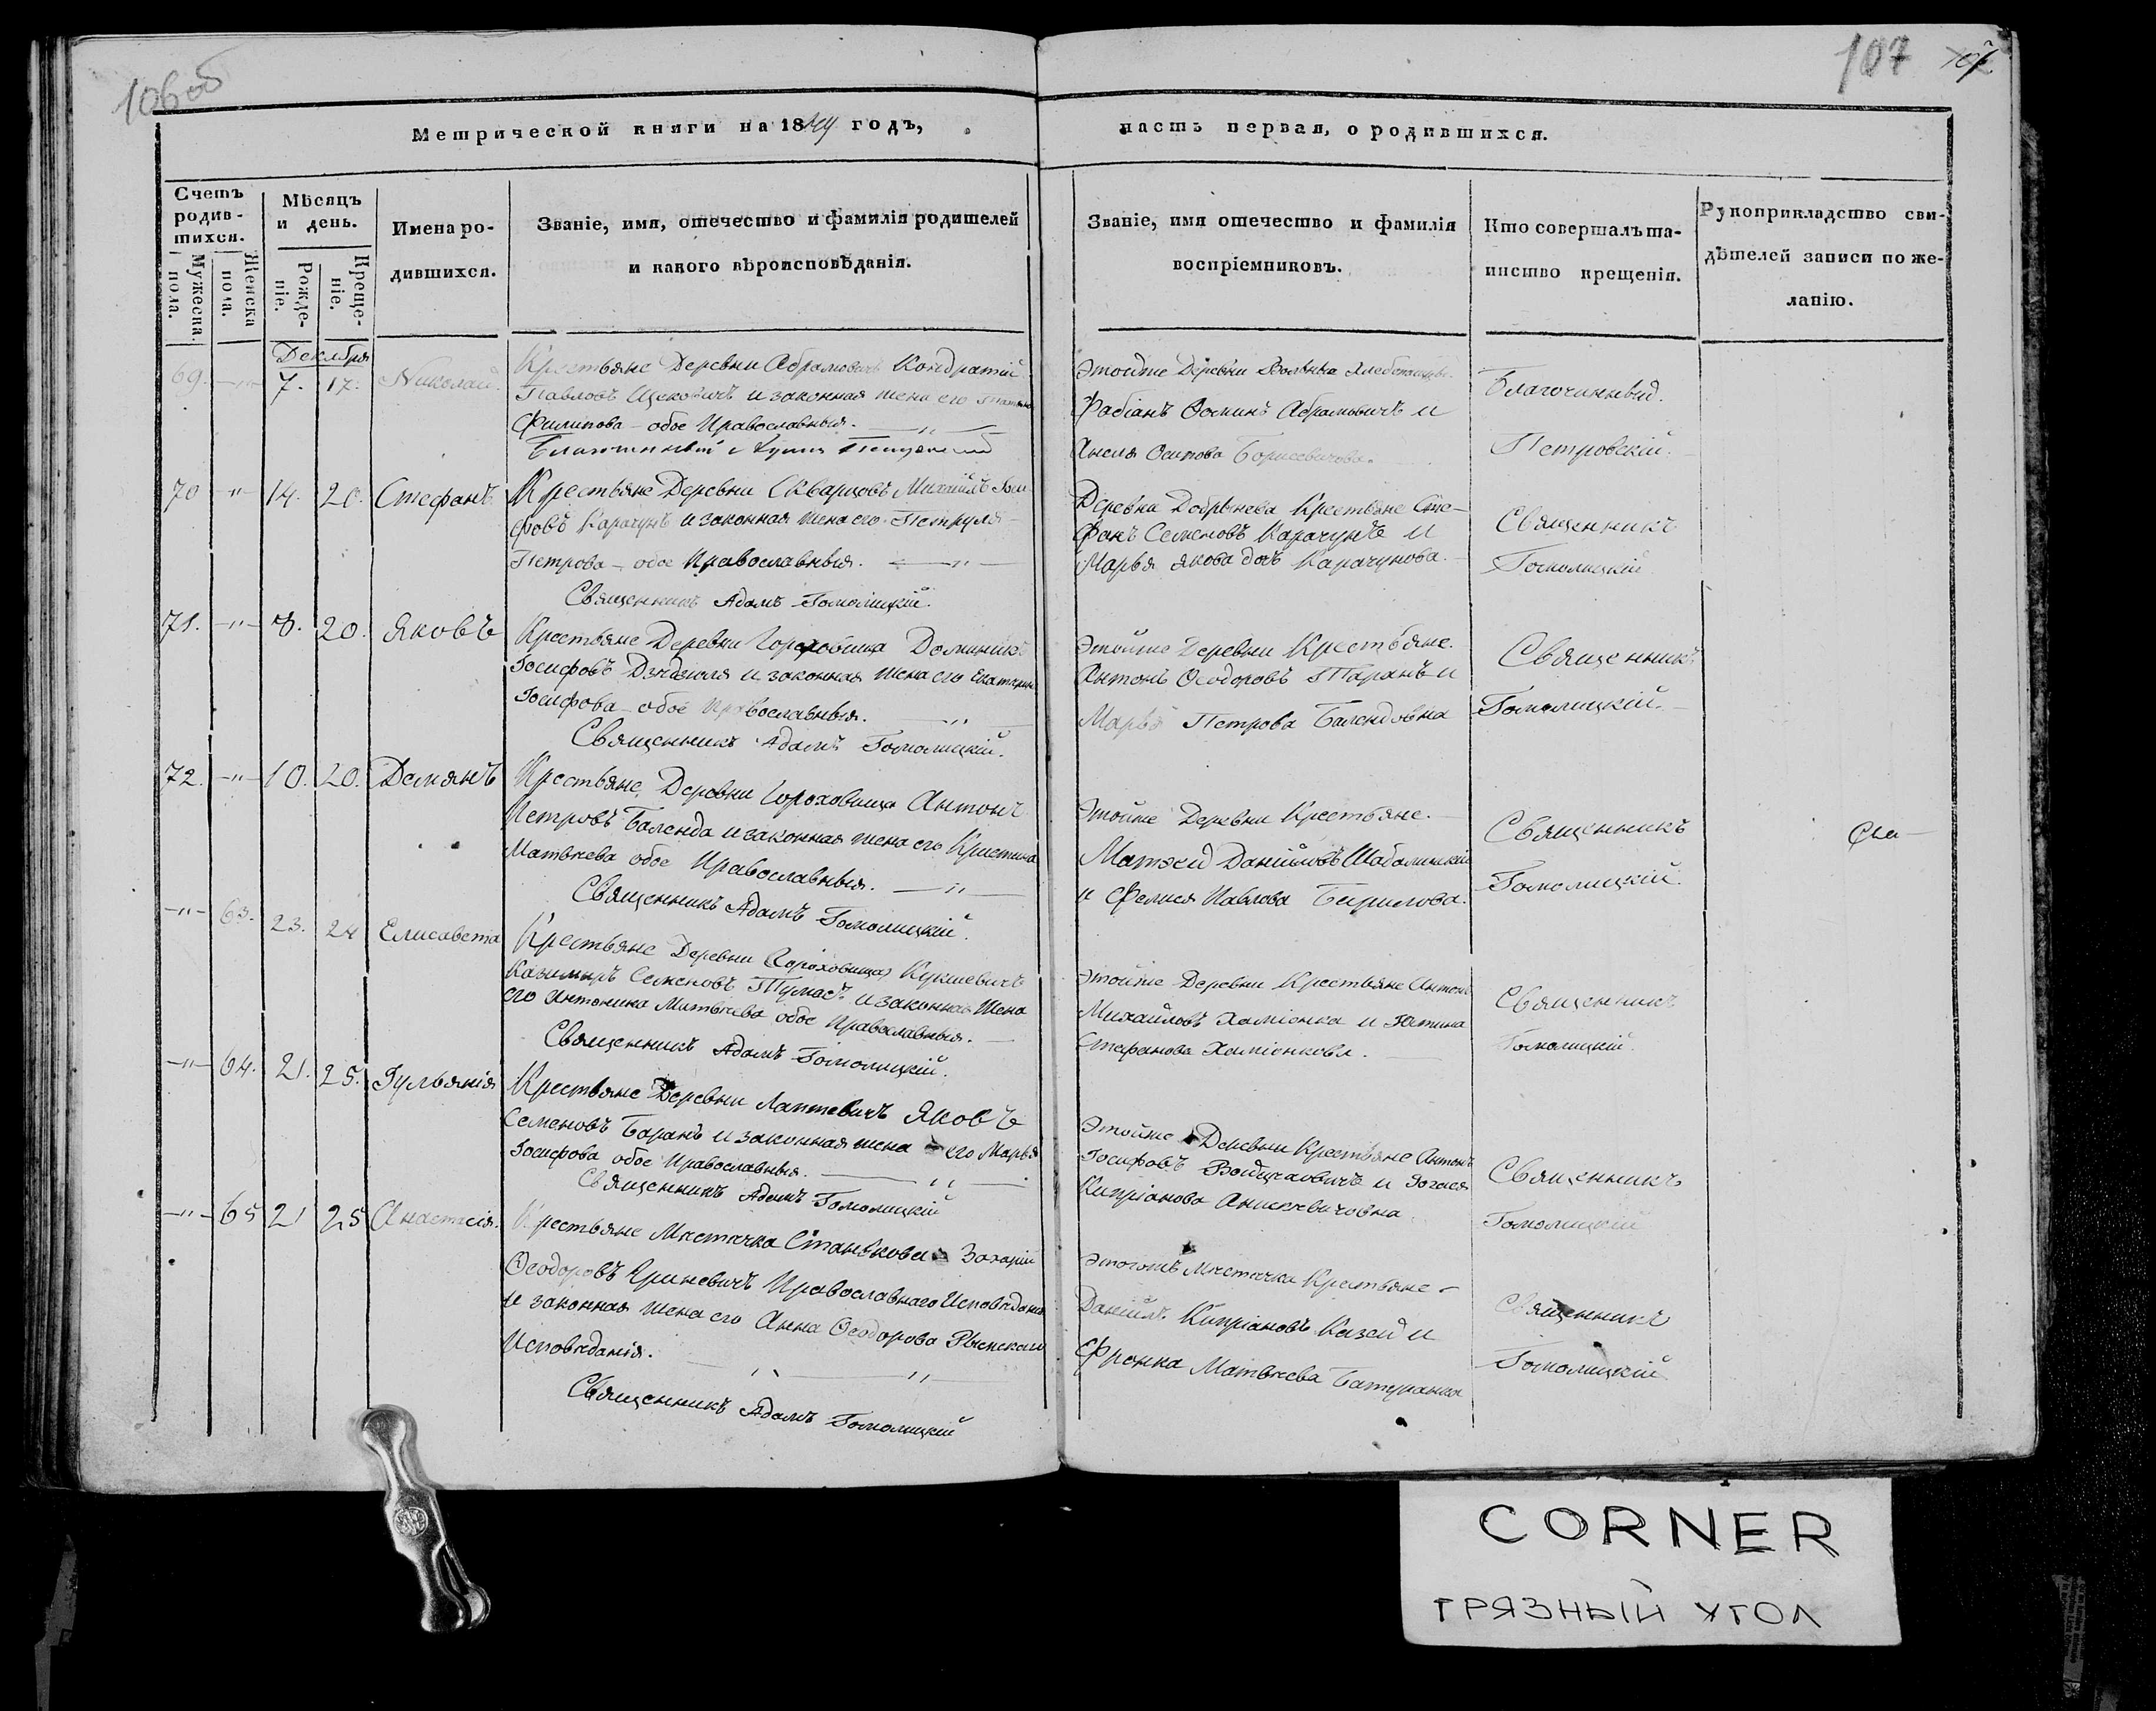 106об
107
Метрической книги на 1844 годъ,
часть первая, о родившихся.
Счетъ родив-шихся.
Мужеска пола.
Женска пола.
Мѣсяцъ и день.
Рожде-ніе.
Креще-ніе.
Имена ро-
дившихся.
Званіе, имя, отечество и фамилія родителей
и какого вѣроисповѣданія.
Званіе, имя отечество и фамилія
воспріемниковъ.
Кто совершалъ та-
инство крещенія.
Рукоприкладство сви-
дѣтелей записи по же-
ланію.
Декабря
69. -"- 7. 17. Николай.
Крестьяне Деревни Абрамовичъ Кондратій
Павловъ и законная жена его
Филипова - обое Православныя. -"-
Благочинный
Этойже Деревни Вольные
Фабіанъ Ѳоминъ Абрамовичъ и
Анеля Осипова Борисевичова.
Благочинный.
Петровскій.
70 -"- 14. 20. Стефанъ
Крестьяне Деревни Скварцовъ Михаилъ Іоси-
фовъ Карачунъ и законная жена его Петруля
Петрова - обое Православныя. -"-
Священникъ Адамъ Гомолицкій.
Деревни Добрынева Крестьяне Сте-
фанъ Семеновъ Карачунъ и
Марья Якова дочь Карачунова.
Священникъ
Гомолицкій
71. -"- 8. 20. Яковъ
Крестьяне Деревни Гороховища Доминикъ
Іосифовъ и законная жена его Екатерина
Іосифова - обое Православныя. -"-
Священникъ Адамъ Гомолицкій.
Этойже Деревни Крестьяне.
Антонъ Ѳеодоровъ Таранъ и
Марья Петрова Балендовна
Священникъ
Гомолицкій.
72. -"- 10. 20. Демянъ
Крестьяне, Деревни Гороховища Антонъ
Петровъ Баленда и законная жена его Кристина
Матвѣева обое Православныя. -"-
Священникъ Адамъ Гомолицкій.
Этойже Деревни Крестьяне.
Матвей Даніиловъ
и Павлова
Священникъ
Гомолицкій.
-"- 63. 23. 24 Елисавета
Крестьяне Деревни Гороховища
Казимиръ Семеновъ и законная Жена
его Антонина Матвѣева обое Православныя.
Священникъ Адамъ Гомолицкій.
Этойже Деревни Крестьяне Антонъ
Михайловъ Хаміонка и Юстина
Стефанова Хаміонкова.
Священникъ
Гомолицкій.
-"- 64. 21. 25. Іульянія
Крестьяне Деревни Лаптевичъ Яковъ
Семеновъ Баранъ и законная жена его Марья
Іосифова обое Православныя. -"-
Священникъ Адамъ Гомолицкій
Этойже Деревни Крестьяне Антонъ
Іосифовъ и
Кипріанова
Священникъ
Гомолицкій
-"- 65 21 25 Анастасія.
Крестьяне Мѣстечка Станькова Захарій
Ѳеодоровъ Гриневичъ Православнаго Исповѣданія
и законная жена его Анна Ѳеодорова Рымскаго
Исповѣданія. -"-
Священникъ Адамъ Гомолицкій
Этогожъ Мѣстечка Крестьяне
Даніилъ Кипріановъ Казей и
Франка Матвѣева
Священникъ
Гомолицкій
CORNER
ГРЯЗНЫЙ УГОЛ